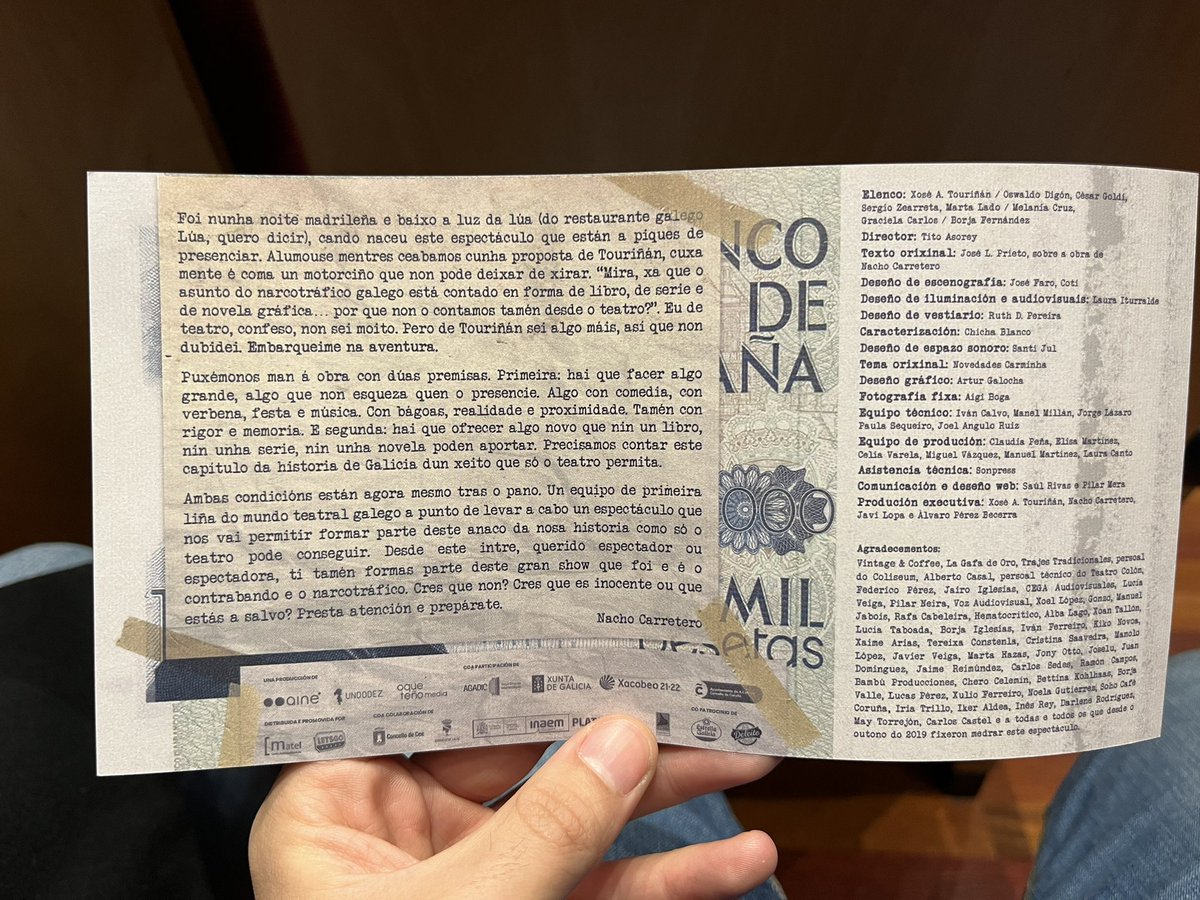 Foi nunha noite madrileña e baixo a luz da lúa (do restaurante galego
Lúa, quero dicir), cando naceu este espectáculo que están a piques de
presenciar. Alumouse mentres ceabamos cunha proposta de Touriñán, cuxa
mente é coma un motorciño que non pode deixar de xirar. “Mira, xa que o
asunto do narcotráfico galego está contado en forma de libro, de serie e
de novela gráfica... por que non o contamos tamén desde o teatro?”. Eu de
teatro, confeso, non sei moito. Pero de Touriñán sei algo máis, así que non
dubidei. Embarqueime na aventura.
Puxémonos man á obra con dúas premisas. Primeira: hai que facer algo
grande, algo que non esqueza quen o presencie. Algo con comedia, con
verbena, festa e música. Con bágoas, realidade e proximidade. Tamén con
rigor e memoria. E segunda: hai que ofrecer algo novo que nin un libro,
nin unha serie, nin unha novela poden aportar. Precisamos contar este
capítulo da historia de Galicia dun xeito que só o teatro permita.
Ambas condicións están agora mesmo tras o pano. Un equipo de primeira
liña do mundo teatral galego a punto de levar a cabo un espectáculo que
nos vai permitir formar parte deste anaco da nosa historia como só o
teatro pode conseguir. Desde este intre, querido espectador ou
espectadora, ti tamén formas parte deste gran show que foi e é o
contrabando e o narcotráfico. Cres que non? Cres que es inocente ou que
estás a salvo? Presta atención e prepárate.
Nacho Carretero
UNA PRODUCIÓN DE
COA PARTICIPACIÓN DE
ainé
UNODDEZ
aque teño media
AGADIC
XUNTA DE GALICIA
Xacobeo 21·22
DISTRIBUIDA E PROMOVIDA POR
COA COLABORACIÓN DE
CO PATROCINIO DE
[matel
LETSGO
Concello de Cee
inaem
PLAT
Estrella Galicia
Deleite
NCO
DE
AÑA
000
MIL
Pesetas
Elenco: Xosé A. Touriñán / Oswaldo Digón, César Goldi,
Sergio Zearreta, Marta Lado / Melania Cruz,
Graciela Carlos / Borja Fernández
Director: Tito Asorey
Texto orixinal: José L. Prieto, sobre a obra de
Nacho Carretero
Deseño de escenografía: José Faro, Coti
Deseño de iluminación e audiovisuais: Laura Iturralde
Deseño de vestiario: Ruth D. Pereira
Caracterización: Chicha Blanco
Deseño de espazo sonoro: Santi Jul
Tema orixinal: Novedades Carminha
Deseño gráfico: Artur Galocha
Fotografía fixa: Aigi Boga
Equipo técnico: Iván Calvo, Manel Millán, Jorge Lázaro
Paula Sequeiro, Joel Angulo Ruiz
Equipo de produción: Claudia Peña, Elisa Martínez,
Celia Varela, Miguel Vázquez, Manuel Martínez, Laura Canto
Asistencia técnica: Sonpress
Comunicación e deseño web: Saúl Rivas e Pilar Mera
Produción executiva: Xosé A. Touriñán, Nacho Carretero,
Javi Lopa e Álvaro Pérez Becerra
Agradecementos:
Vintage & Coffee, La Gafa de Oro, Trajes Tradicionales, persoal
do Coliseum, Alberto Casal, persoal técnico do Teatro Colón,
Federico Pérez, Jairo Iglesias, CEGA Audiovisuales, Lucía
Veiga, Pilar Neira, Voz Audiovisual, Xoel López, Gonzo, Manuel
Jabois, Rafa Cabeleira, Hematocrítico, Alba Lago, Xoan Tallón,
Lucía Taboada, Borja Iglesias, Iván Ferreiro, Kiko Novoa,
Xaime Arias, Tereixa Constenla, Cristina Saavedra, Manolo
López, Javier Veiga, Marta Hazas, Jony Otto, Joselu, Juan
Domínguez, Jaime Reimúndez, Carlos Sedes, Ramón Campos,
Bambú Producciones, Chero Celemín, Bettina Kohlhaas, Borja
Valle, Lucas Pérez, Xulio Ferreiro, Noela Gutierrez, Soho Café
Coruña, Iria Trillo, Iker Aldea, Inés Rey, Darlene Rodríguez,
May Torrejón, Carlos Castel e a todas e todos os que desde o
outono do 2019 fixeron medrar este espectáculo.